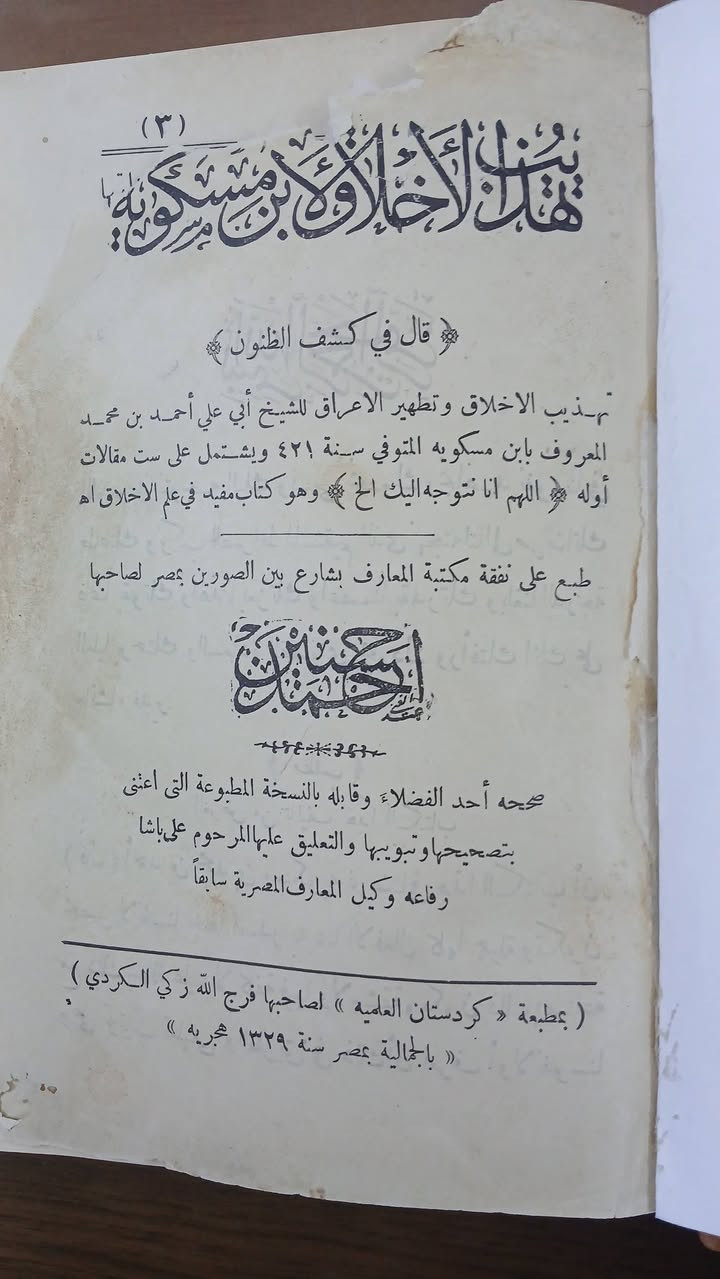 (٣)
تهذيب الأخلاق لابن مسكويه
﴿ قال في كشف الظنون ﴾
تهـذيب الاخلاق وتطهير الاعراق للشيخ أبي علي أحمـد بن محمـد
المعروف بابن مسكويه المتوفي سـنة ٤٢١ ويشتـمل على ست مقالات
أوله ﴿ اللهم انا نتوجه اليك الخ ﴾ وهو كتاب مفيد في علم الاخلاق اه
طبع على نفقة مكتبة المعارف بشارع بين الصورين بمصر لصاحبها
أحمد حسنين
صححه أحد الفضلاء وقابله بالنسخة المطبوعة التى اعتنى
بتصحيحها وتبويبها والتعليق عليها المرحوم على باشا
رفاعه وكيل المعارف المصرية سابقاً
( بمطبعة « كردستان العلميه » لصاحبها فرج الله زكي الكردي )
« بالجمالية بمصر سنة ١٣٢٩ هجريه »